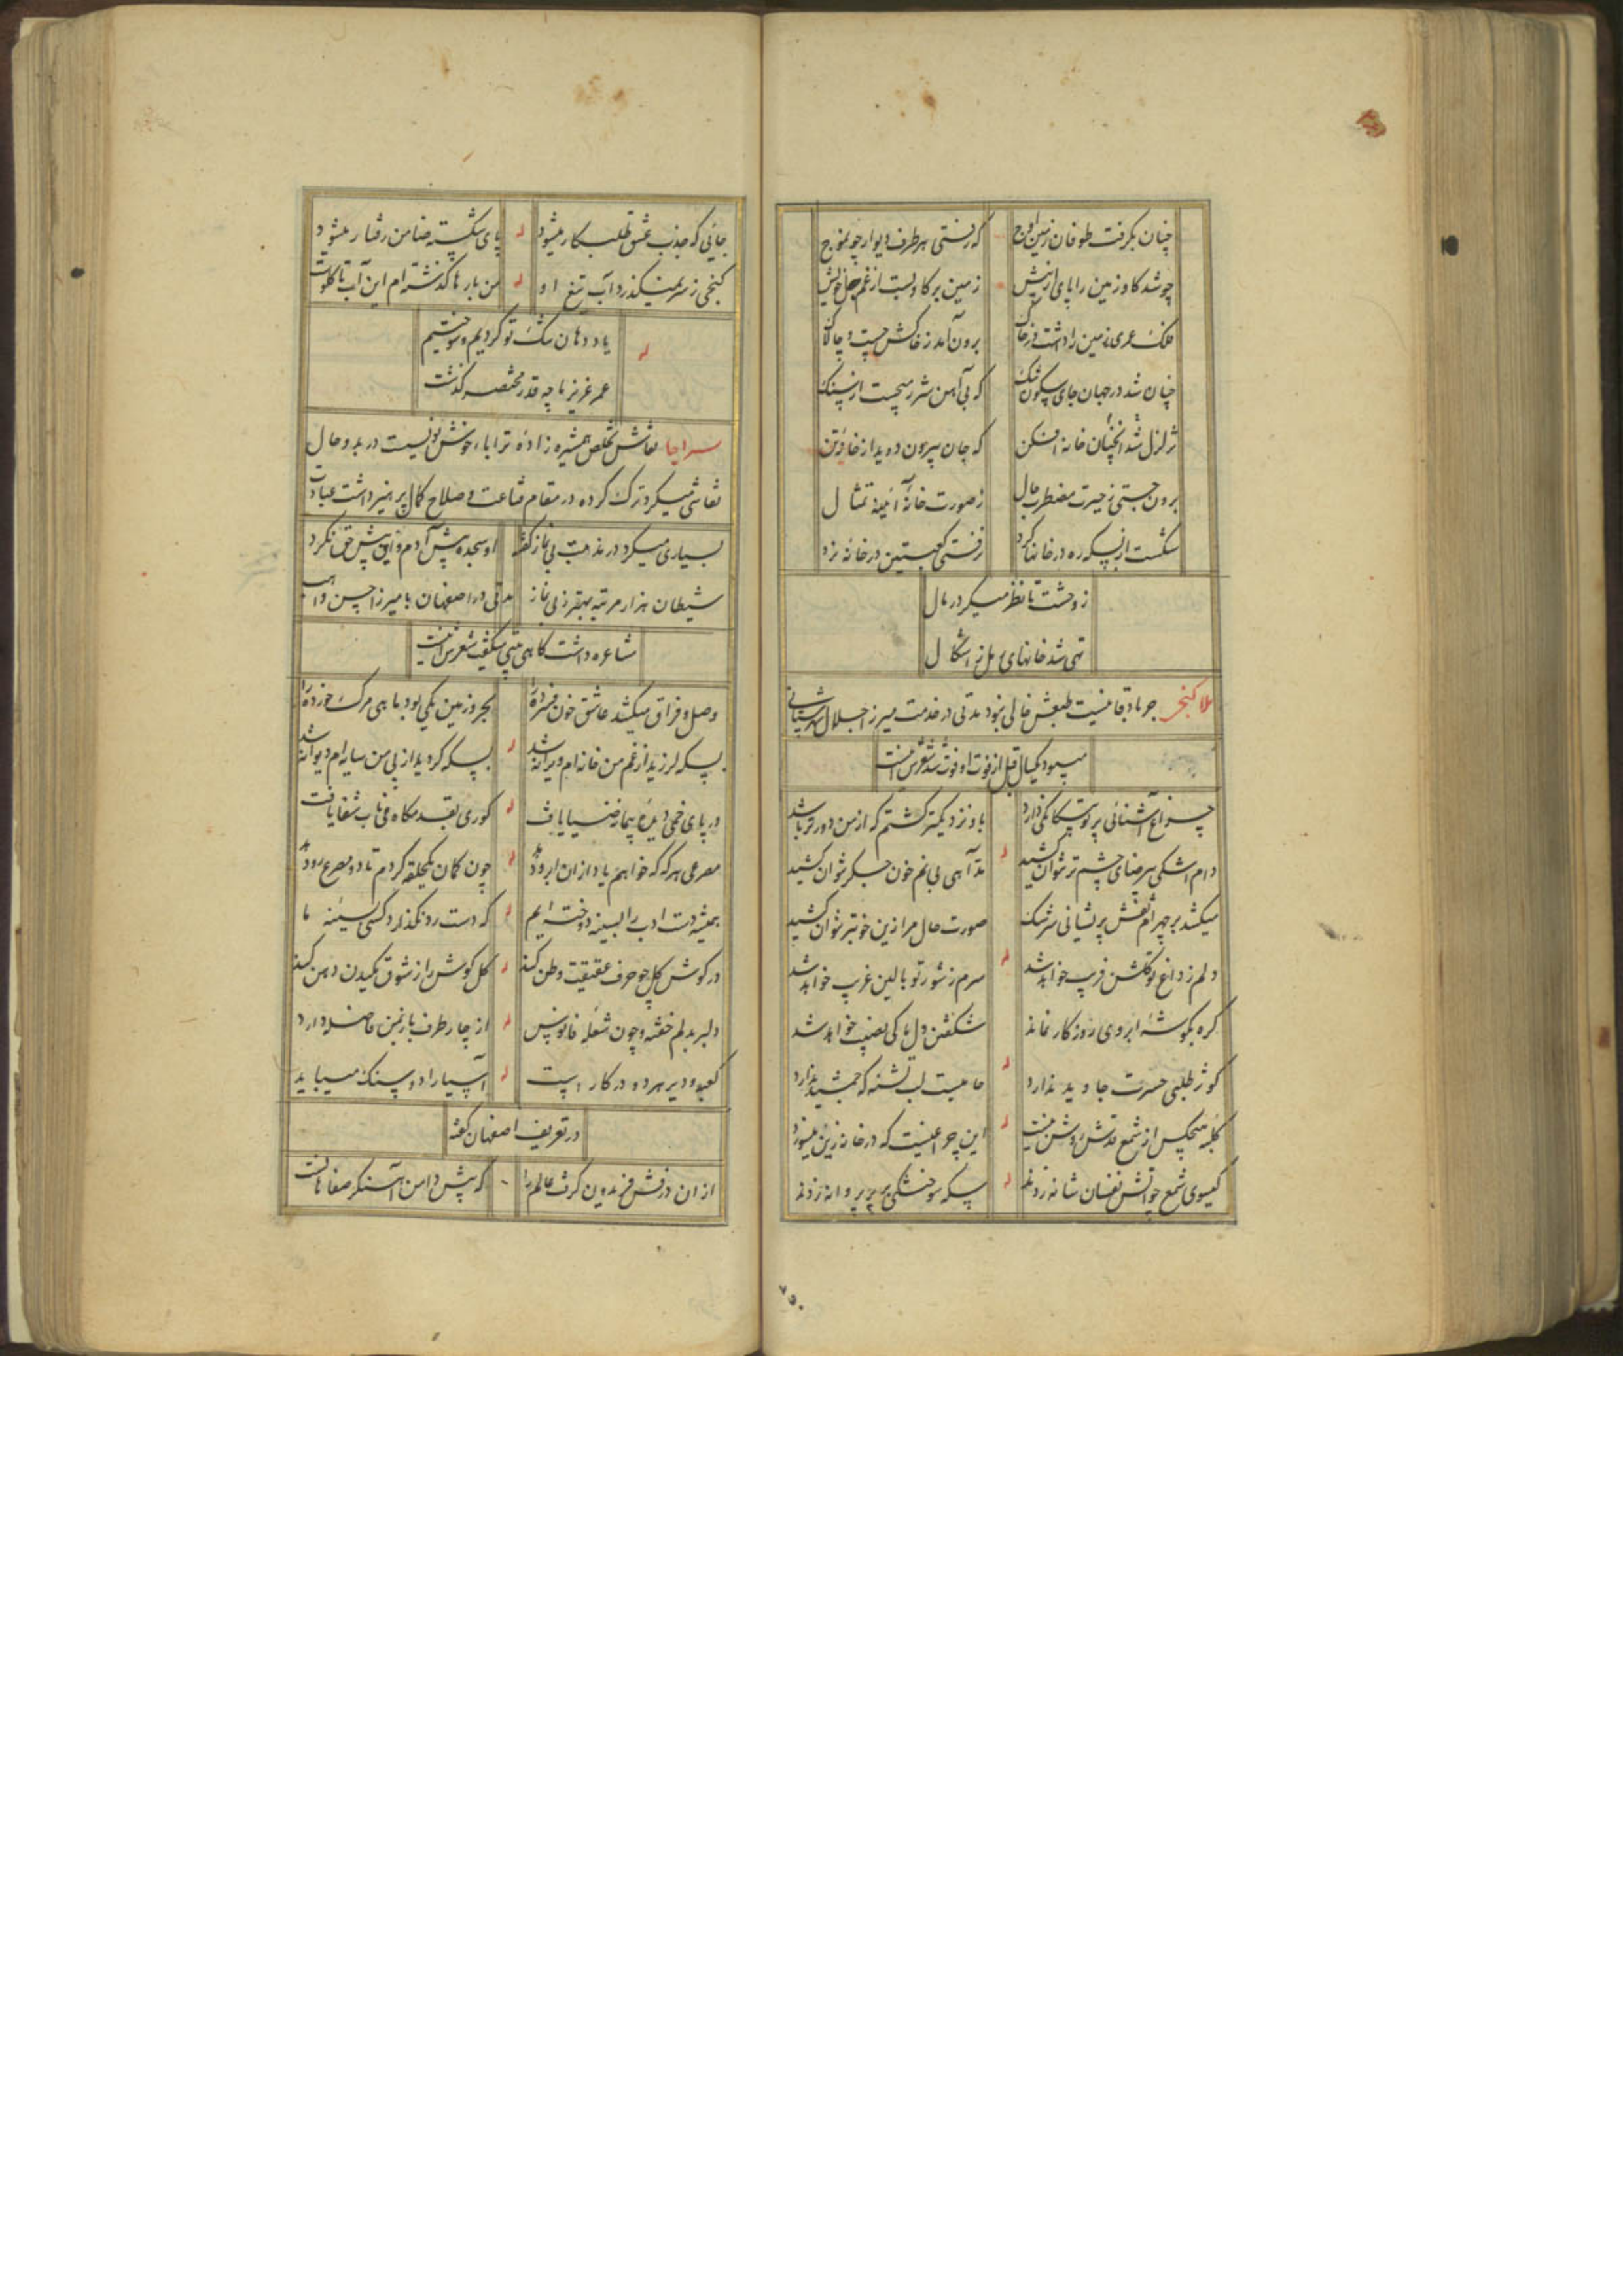 چنان بگرفت طوفان زمین اوج که رفتی هر طرف دیوار چو موج
چو شد کاو زمین را پای از پیش زمین بر کاو بست از غم خویش
فلک عمری زمین را داشت در خاک برون آمد ز خاکش چست و چالاک
چنان شد در جهان جای سکون تنک که بی آهن شرر میجست از سنک
تزلزل شد آنچنان خانه افکن که جان بیرون دوید از خانه تن
برون جستی ز حیرت مضطرب حال ز صورت خانه آئینه تمثال
شکست از بسکه ره در خانها کرد رفتی کعبتین در خانه نرد
ز وحشت تا نظر میکرد رمال
تهی شد خانهای رمل ز اشکال
ملا کنجی جربادقانیست طبعش خالی نبود مدتی در خدمت میرزا جلال شهرستانی
میبود یکسال قبل از فوت او فوت شد شعرش اینست
چراغ آشنائی پرتو یکانکی دارد باو نزدیکتر کشتم که از من دورتر باشد
دام اشکی بر رضای چشم تر نتوان کشید مد آهی بی نم خون جکر نتوان کشید
میکشد بر چهره ام نقش پریشانی سرشک صورت حال مرا زین خوبتر نتوان کشید
دلم ز داغ تو کلشن فریب خواهد شد سرم ز شور تو بالین غریب خواهد شد
کره بکوشه ابروی روزکار نماند شکفتن دل ما کی نصیب خواهد شد
کوثر طلبی حسرت جاوید ندارد جامیست لب تشنه که جمشید ندارد
کلبه هیچکس از شمع قدش روشن نیست این چراغیست که در خانه زین میسوزد
کیسوی شمع چو آتش نفسان شانه زدند بسکه سوختکی بر پر پروانه زدند
۷۵۰
جائی که جذب عشق طلبکار میشود پای شکسته ضامن رفتار میشود
کنجی ز سر نمیکذرد آب تیغ او من بارها کذشته ام این آب تا کلوست
یاد دهان تنک تو کردیم و سوختیم
عمر عزیز ما چه قدر مختصر کذشت
سراجا نقاش تخلص همشیره زاده ترابا خوش نویسست در بدو حال
نقاشی میکرد ترک کرده در مقام قناعت و صلاح کمال پرهیز داشت عبادت
بسیاری میکرد در مذمت بی نماز کفته او سجده پیش آدم و این پیش حق نکرد
شیطان هزار مرتبه بهتر ز بی نماز مدتی در اصفهان با میرزا حسن واهب
مشاعره داشت کاهی بیتی میکفت شعرش اینست
وصل و فراق میکشد عاشق خون فسرده را بحر و زمین یکی بود ماهی مرک خورده را
بسکه لرزید از غم من خانه ام ویرانه شد بسکه کردید از پی من سایه ام دیوانه شد
در پای خمی دیده پیمانه ضیا یافت کوری بقدمکاه می ناب شفا یافت
مصرعی هر که که خواهم یاد از آن ابرو دهد چون کمان یکحلقه کردم تا دو مصرع رو دهد
همیشه دست ادب را بسینه دوخته ایم که دست رد نکذارد کسی بسینه ما
در کوش کل چو حرف عقیقت وطن کند کل کوش را ز شوق مکیدن دهن کند
دلبر بدلم خفته و چون شعله فانوس از چار طرف با ز من فاصله دارد
کعبه و دیر هر دو در کار است آسیا را دو سنک میباید
در تعریف اصفهان کفته
از ان درفش فریدون کرفت عالم را که پیش دامن آهنکر صفاهانست